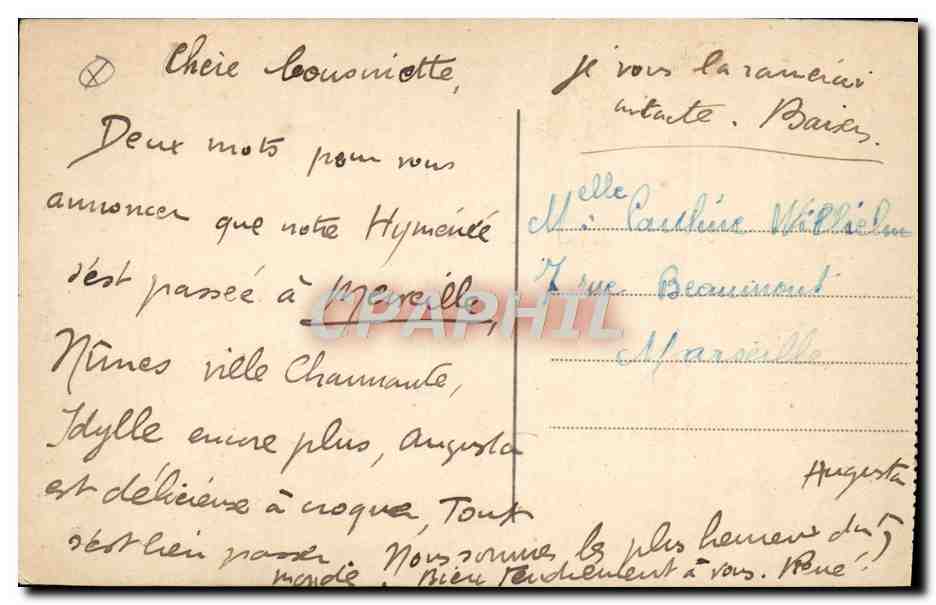 Chère Cousinette,
Deux mots pour vous
annoncer que notre Hyménée
s'est passée à Merveille,
Nîmes ville Charmante,
Idylle encore plus, Augusta
est délicieuse à croquer, Tout
s'est bien passer. Nous sommes les plus heureux du
monde. Bien tendrement à vous. René!
je vous la ramènerai
intacte. Baisers.
Melle: Pauline Wilhielm
7 rue Beaumont
Marseille
Augusta
CPAPHIL